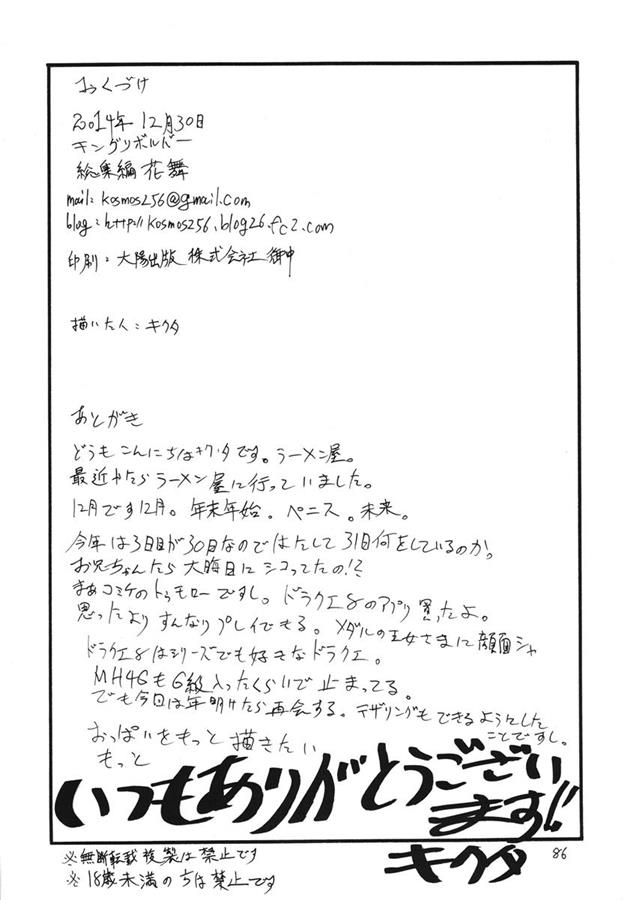 おくづけ
2014年12月30日
キングリボルバー
総集編 花舞
mail: kosmos256@gmail.com
blog: http://kosmos256.blog26.fc2.com
印刷：大陽出版 株式会社 御中
描いた人：キクタ
あとがき
どうもこんにちはキクタです。ラーメン屋。
最近やたらラーメン屋に行っていました。
12月です12月。年末年始。ペニス。未来。
今年は3日目が30日なのではたして31日何をしているのか。
お兄ちゃんたら大晦日にシコってたの!?
まあコミケのトゥモローですし。ドラクエ8のアプリ買ったよ。
思ったよりすんなりプレイできる。メダルの王女さまに顔面シャ
ドラクエ8はシリーズでも好きなドラクエ。
MH4GもG級入ったくらいで止まってる。
でも今回は年明けたら再会する。テザリングもできるようにした
ことですし。
おっぱいをもっと描きたい
もっと
いつもありがとうござい
ます!!
キクタ
※無断転載複製は禁止です
※18歳未満のちは禁止です
86